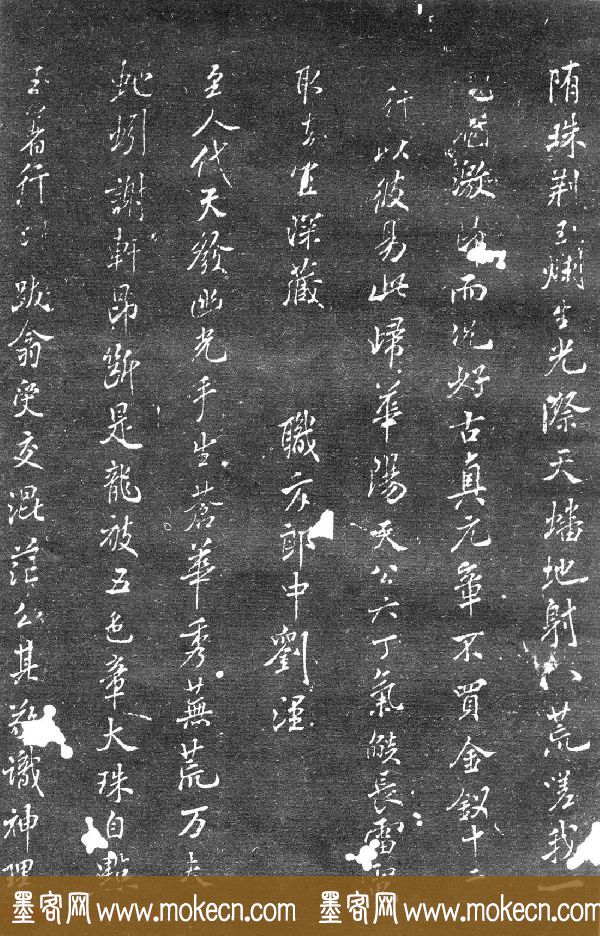 隋珠荆玉爛生光際天蟠地射八荒嗟我一
見猶激昂而況好古真元章不買金釵十二
行以彼易此歸華陽天公六丁氣燄長雷電
取去宜深藏 職方郎中劉涇
至人代天發幽光手生蒼華秀蕪荒万夫
蚓謝軒昂斷是龍被五色章大珠自點
玉著行 跋翁受交混茫公其敬識神理
墨客网 www.mokecn.com 墨客网 www.mokecn.com